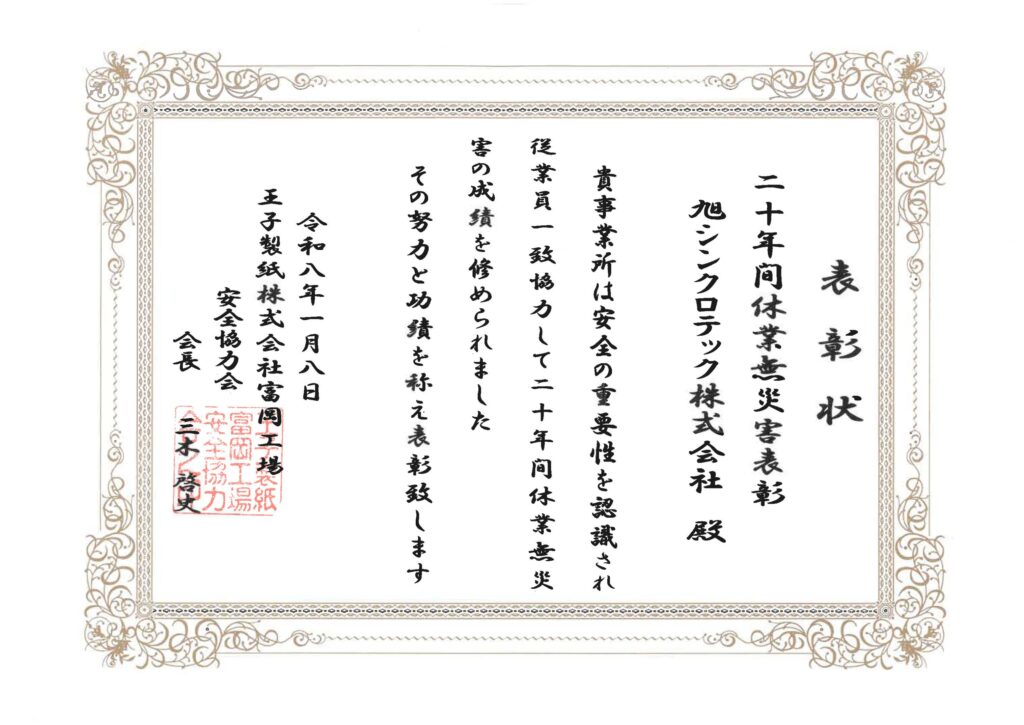 表彰状
二十年間休業無災害表彰
旭シンクロテック株式会社 殿
貴事業所は安全の重要性を認識され
従業員一致協力して二十年間休業無災
害の成績を修められました
その努力と功績を称え表彰致します
令和八年一月八日
王子製紙株式会社富岡工場
安全協力会
会長 三木 啓史
王子製紙
富岡工場
安全協力